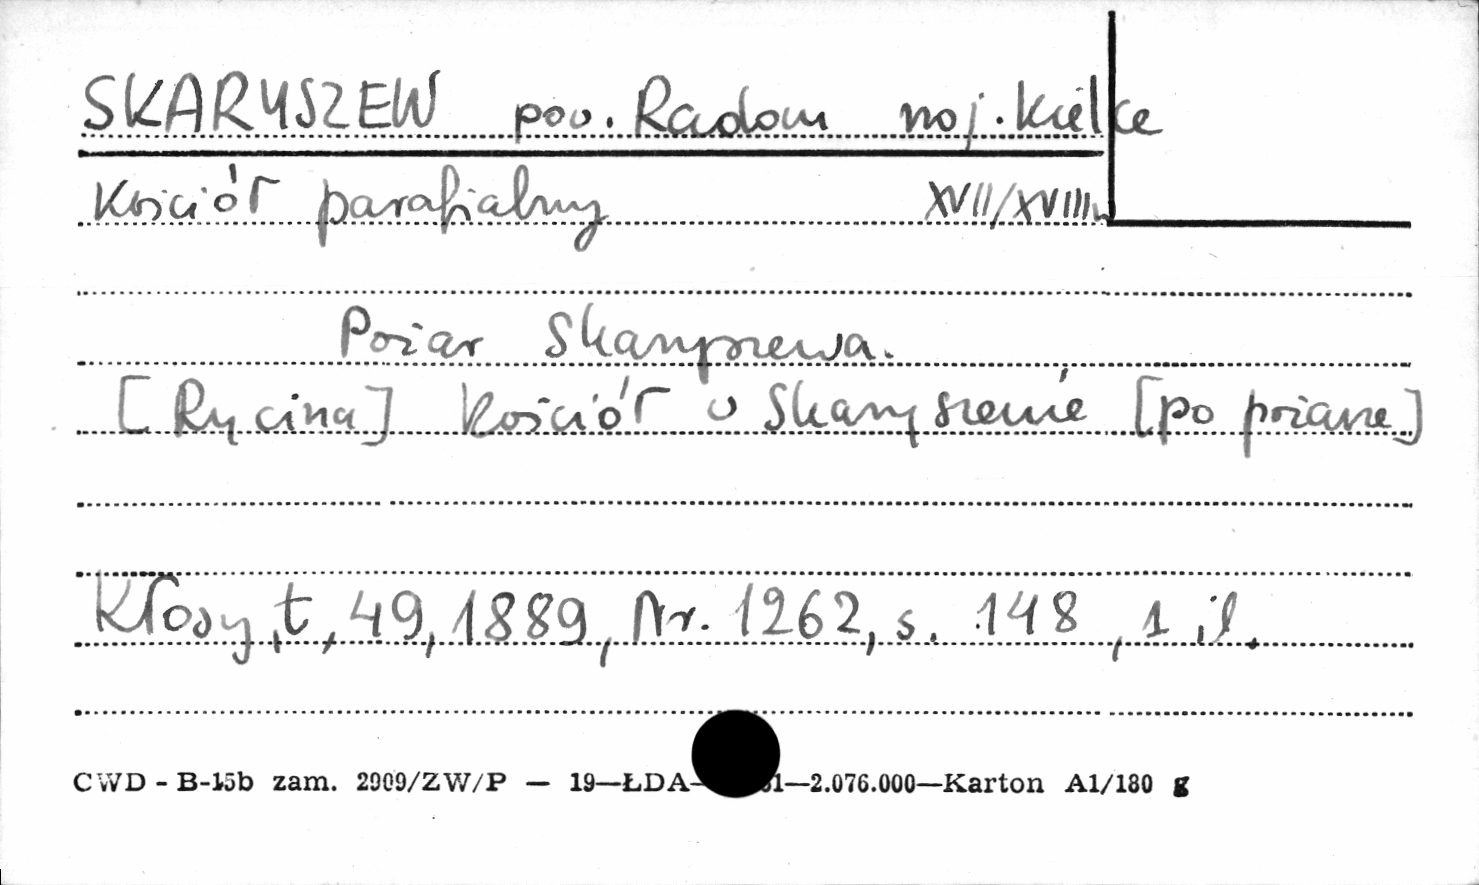 SKARYSZEW pow. Radom woj. Kielce
Kościół parafialny XVII/XVIII w.
Pożar Skaryszewa.
[Rycina] Kościół w Skaryszewie [po pożarze]
Kłosy, t, 49, 1889, Nr. 1262, s. 148, 1 il.
CWD - B-15b zam. 2909/ZW/P — 19—ŁDA— 61—2.076.000—Karton A1/180 g